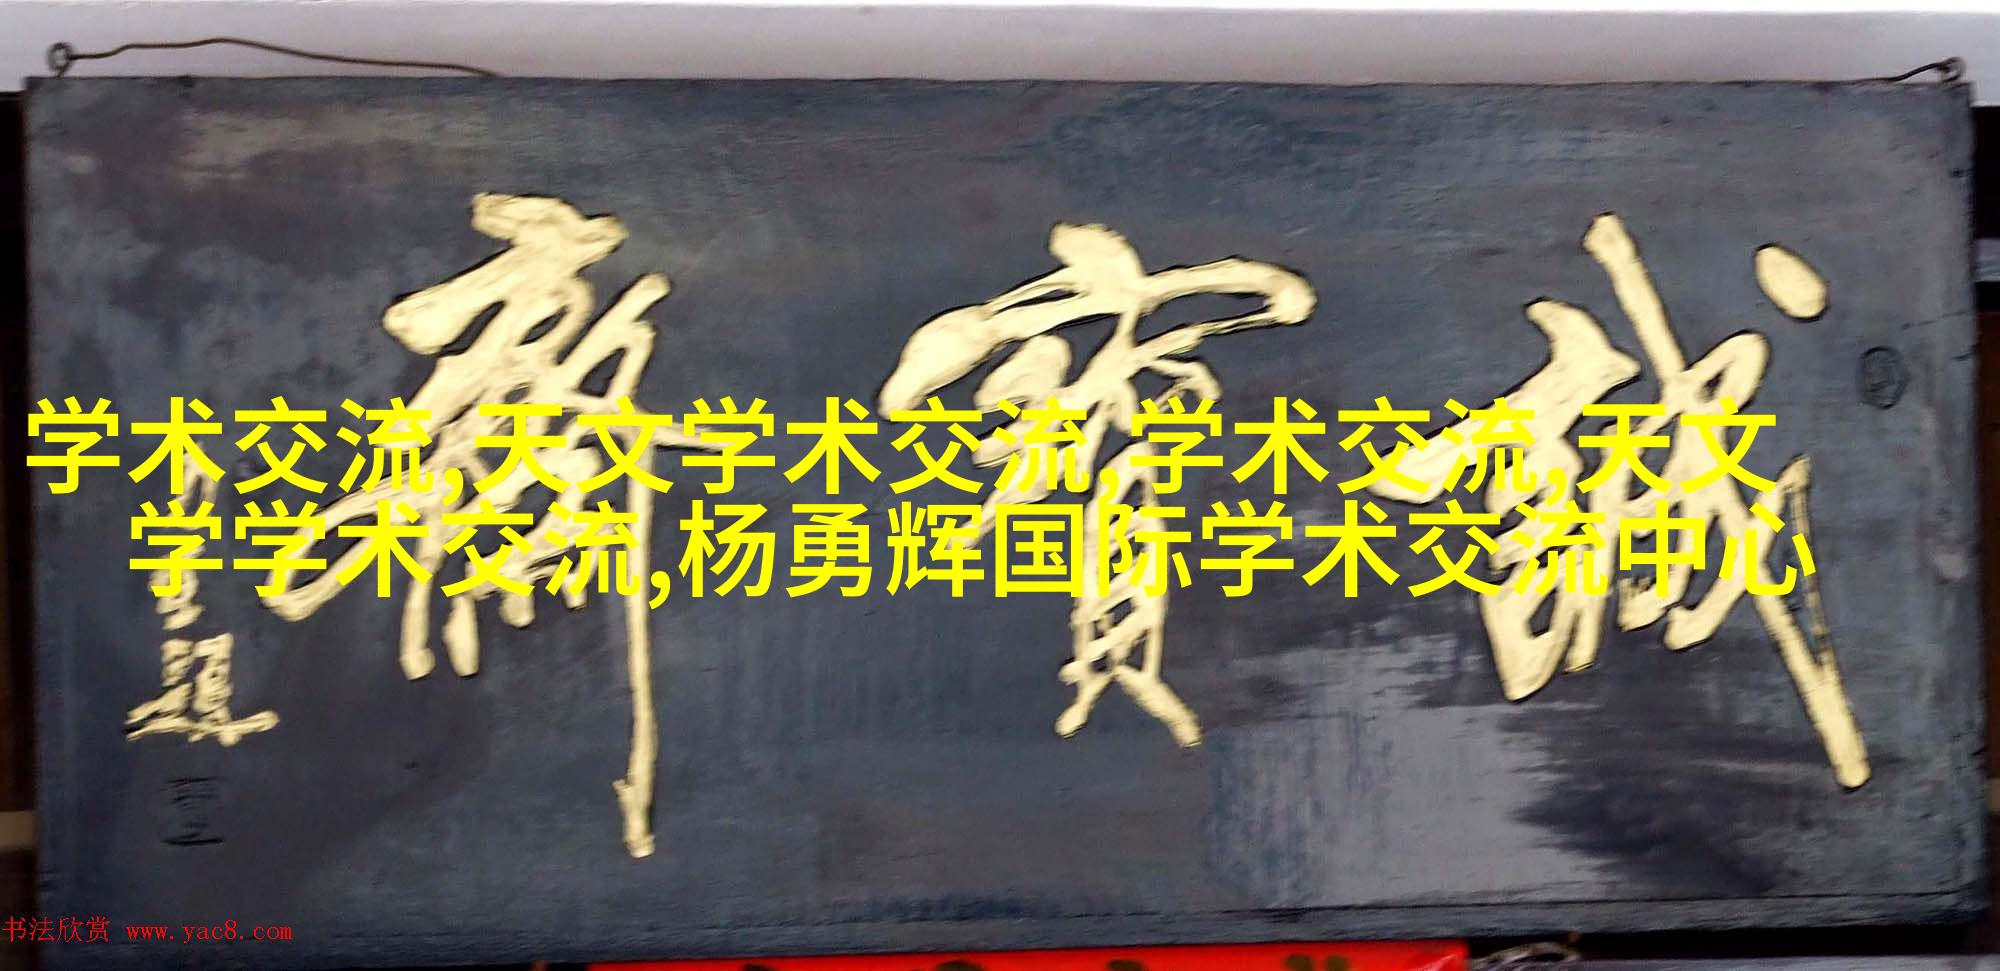 誠寳齋
学术交流,天文学术交流,学术交流,天文
学学术交流,杨勇辉国际学术交流中心
书法欣赏 www.yac8.com